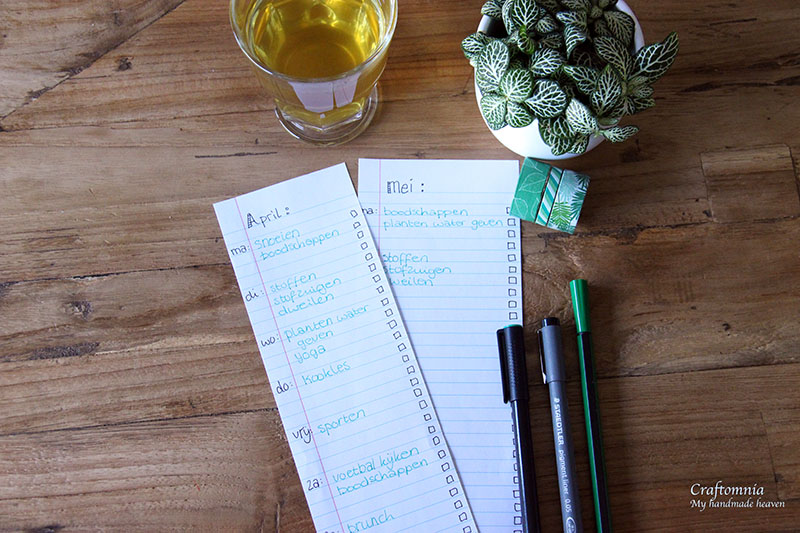 April:
ma: snoeien
boodschappen
di: stoffen
stofzuigen
dweilen
wo: planten water
geven
yoga
do: kookles
vrij: sporten
za: voetbal kijken
boodschappen
brunch
Mei:
ma: boodschappen
planten water geven
stoffen
stofzuigen
dweilen
STAEDTLER pigment liner 0.05
Craftomnia
My handmade heaven